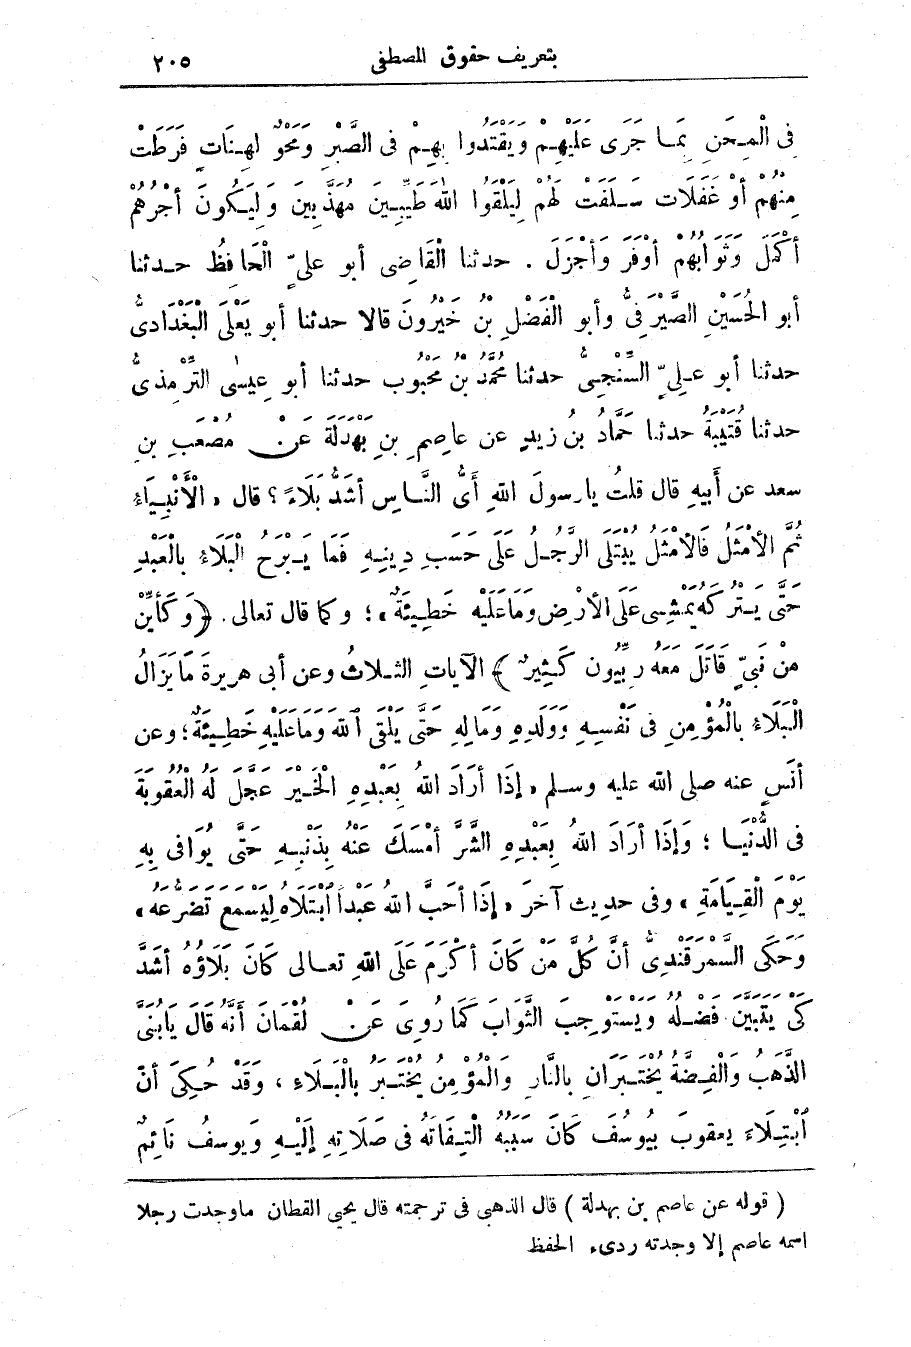 بتعريف حقوق المصطفى ٢٠٥
فى الْمِحَنِ بِمَا جَرَى عَلَيْهِمْ وَيَقْتَدُوا بِهِمْ فى الصَّبْرِ وَمَحْوٌ لِهِنَاتٍ فَرَطَتْ
مِنْهُمْ أوْ غَفَلَات سَلَفَتْ لَهُمْ لِيَلْقَوُا اللهَ طَيِّبِينَ مُهَذَّبِينَ وَلِيَكُونَ أجْرُهُمْ
أكْمَلَ وَثَوَابُهُمْ أوْفَرَ وَأجْزَلَ . حدثنا الْقَاضِى أبو علىّ الْحَافِظُ حدثنا
أبو الحُسَيْنِ الصَّيْرَفىُّ وأبو الفَضْلِ بنُ خَيْرُونَ قالا حدثنا أبو يَعْلَى البَغْدَادىُّ
حدثنا أبو عَلِىّ السِّنْجِىُّ حدثنا مُحَمَّدُ بنُ مَحْبُوب حدثنا أبو عِيسَى التِّرْمِذىُّ
حدثنا قُتَيْبَةُ حدثنا حَمَّادُ بنُ زيدٍ عن عاصِمِ بنِ بَهْدَلَةَ عَنْ مُصْعَبِ بنِ
سعد عن أبِيهِ قال قلتُ يا رسولَ اللهِ أىُّ النَّاسِ أشَدُّ بَلَاءً ؟ قال « الْأَنْبِيَاءُ
ثُمَّ الأمْثَلُ فَالأمْثَلُ يُبْتَلَى الرَّجُلُ عَلَى حَسَبِ دِينِهِ فَمَا يَبْرَحُ الْبَلَاءُ بِالْعَبْدِ
حَتَّى يَتْرُكَهُ يَمْشِى عَلَى الأرْضِ وَمَا عَلَيْهِ خَطِيئَةٌ » ؛ وكما قال تعالى . ﴿ وَكَأَيِّنْ
مِنْ نَبِىٍّ قَاتَلَ مَعَهُ رِبِّيُّون كَثِيرٌ ﴾ الآيَاتِ الثلاثُ وعن أبى هريرةَ مَا يَزَالُ
الْبَلَاءُ بِالْمُؤْمِنِ فى نَفْسِهِ وَوَلَدِهِ وَمَالِهِ حَتَّى يَلْقَى اللهَ وَمَا عَلَيْهِ خَطِيئَةٌ ؛ وعن
أنَسٍ عنه صلى الله عليه وسلم « إذَا أرَادَ اللهُ بِعَبْدِهِ الخَيْرَ عَجَّلَ لَهُ الْعُقُوبَةَ
فى الدُّنْيَا ؛ وَإذَا أرَادَ اللهُ بِعَبْدِهِ الشَّرَّ أمْسَكَ عَنْهُ بِذَنْبِهِ حَتَّى يُوَافى بِهِ
يَوْمَ الْقِيَامَةِ » وفى حديث آخَرَ « إذَا أحَبَّ اللهُ عَبْداً ابْتَلَاهُ لِيَسْمَعَ تَضَرُّعَهُ »
وَحَكَى السَّمَرْقَنْدِىُّ أنَّ كُلَّ مَنْ كَانَ أكْرَمَ عَلَى اللهِ تعالى كَانَ بَلَاؤُهُ أشَدَّ
كَىْ يَتَبَيَّنَ فَضْلُهُ وَيَسْتَوْجِبَ الثَّوَابَ كَمَا رُوِىَ عَنْ لُقْمَانَ أنَّهُ قَالَ يَا بُنَىَّ
الذَّهَبُ وَالْفِضَّةُ يُخْتَبَرَانِ بِالنَّارِ وَالْمُؤْمِنُ يُخْتَبَرُ بِالْبَلَاءِ ، وَقَدْ حُكِىَ أنّ
ابْتِلَاءَ يعقوبَ بِيُوسُفَ كَانَ سَبَبُهُ الْتِفَاتَهُ فى صَلَاتِهِ إلَيْهِ وَيوسفُ نَائِمٌ
( قوله عن عاصم بن بهدلة ) قال الذهبى فى ترجمته قال يحيى القطان ماوجدت رجلا
اسمه عاصم إلا وجدته ردىء الحفظ